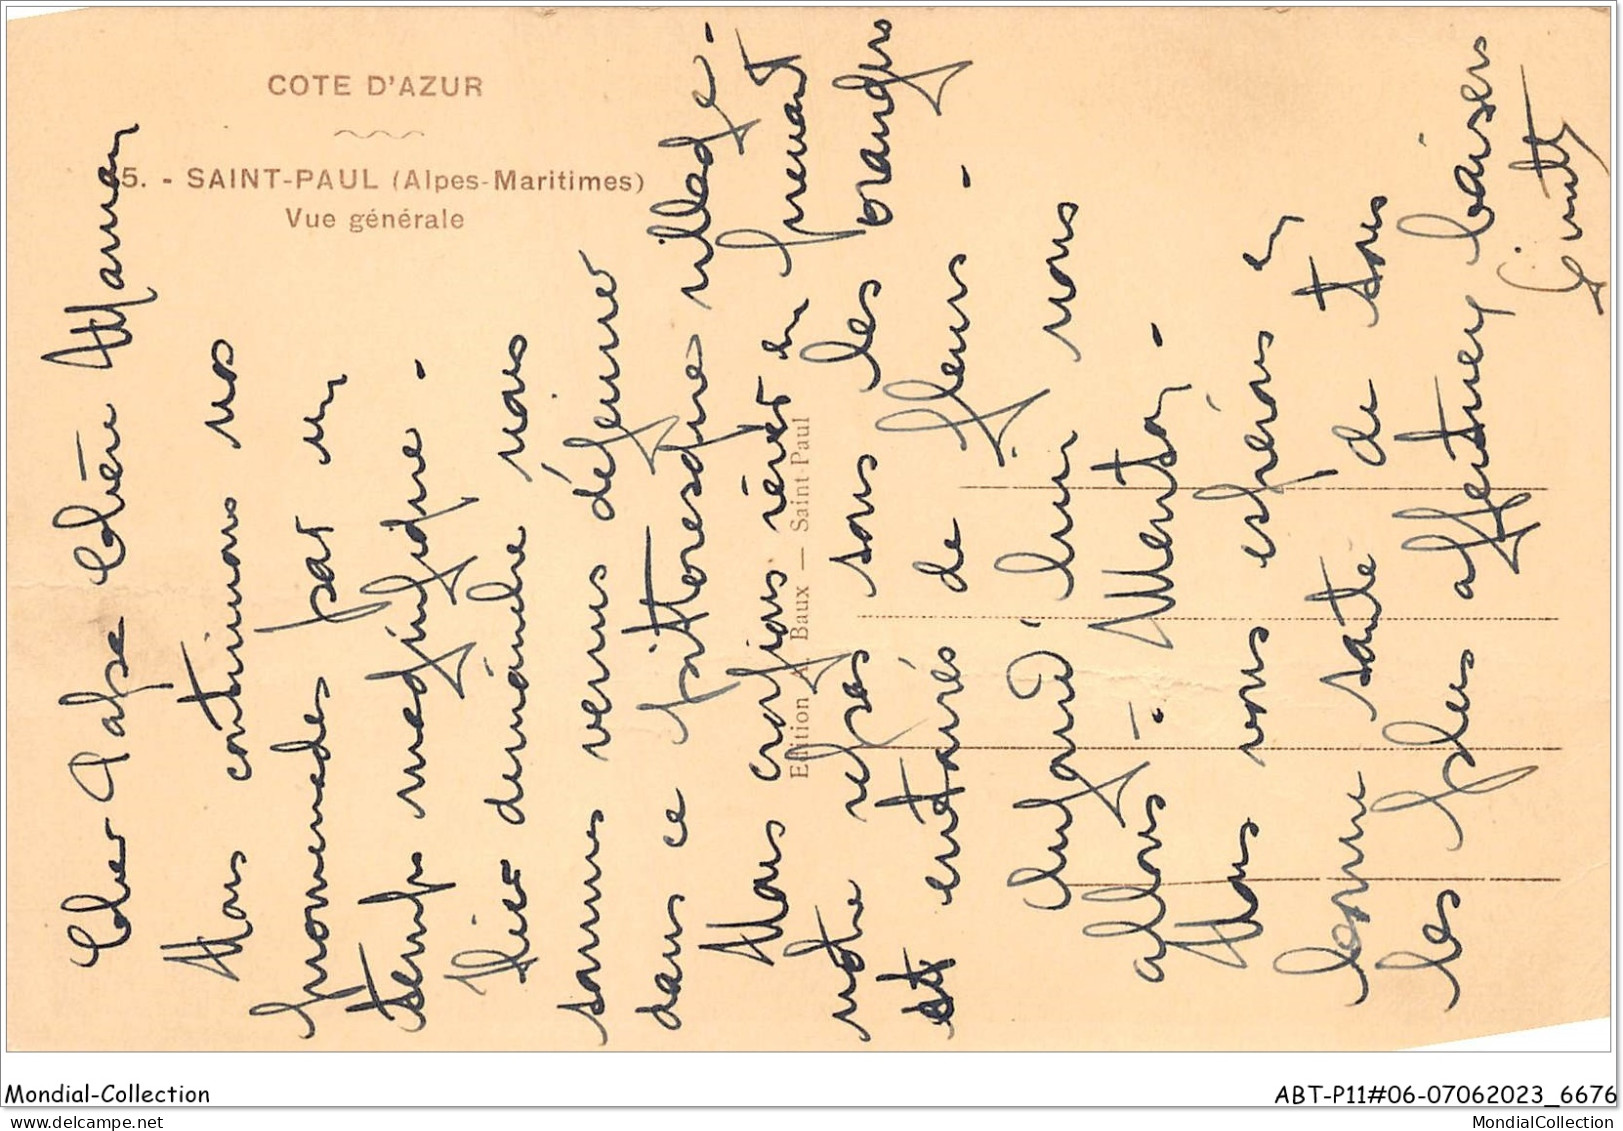 COTE D'AZUR
5. - SAINT-PAUL (Alpes-Maritimes)
Vue générale
Edition A. Baux — Saint-Paul
Cher Papa Chère Maman
Nous continuons nos
promenades par un
temps magnifique -
Hier dimanche nous
sommes venus déjeuner
dans ce pittoresque village -
Nous croyions rêver en prenant
notre repas sous les orangers
et entourés de fleurs -
Aujourd'hui nous
allons à Menton -
Nous vous espérons en
bonne santé de tous
les plus affectueux baisers
Mondial-Collection
ABT-P11#06-07062023_6676
www.delcampe.net
MondialCollection